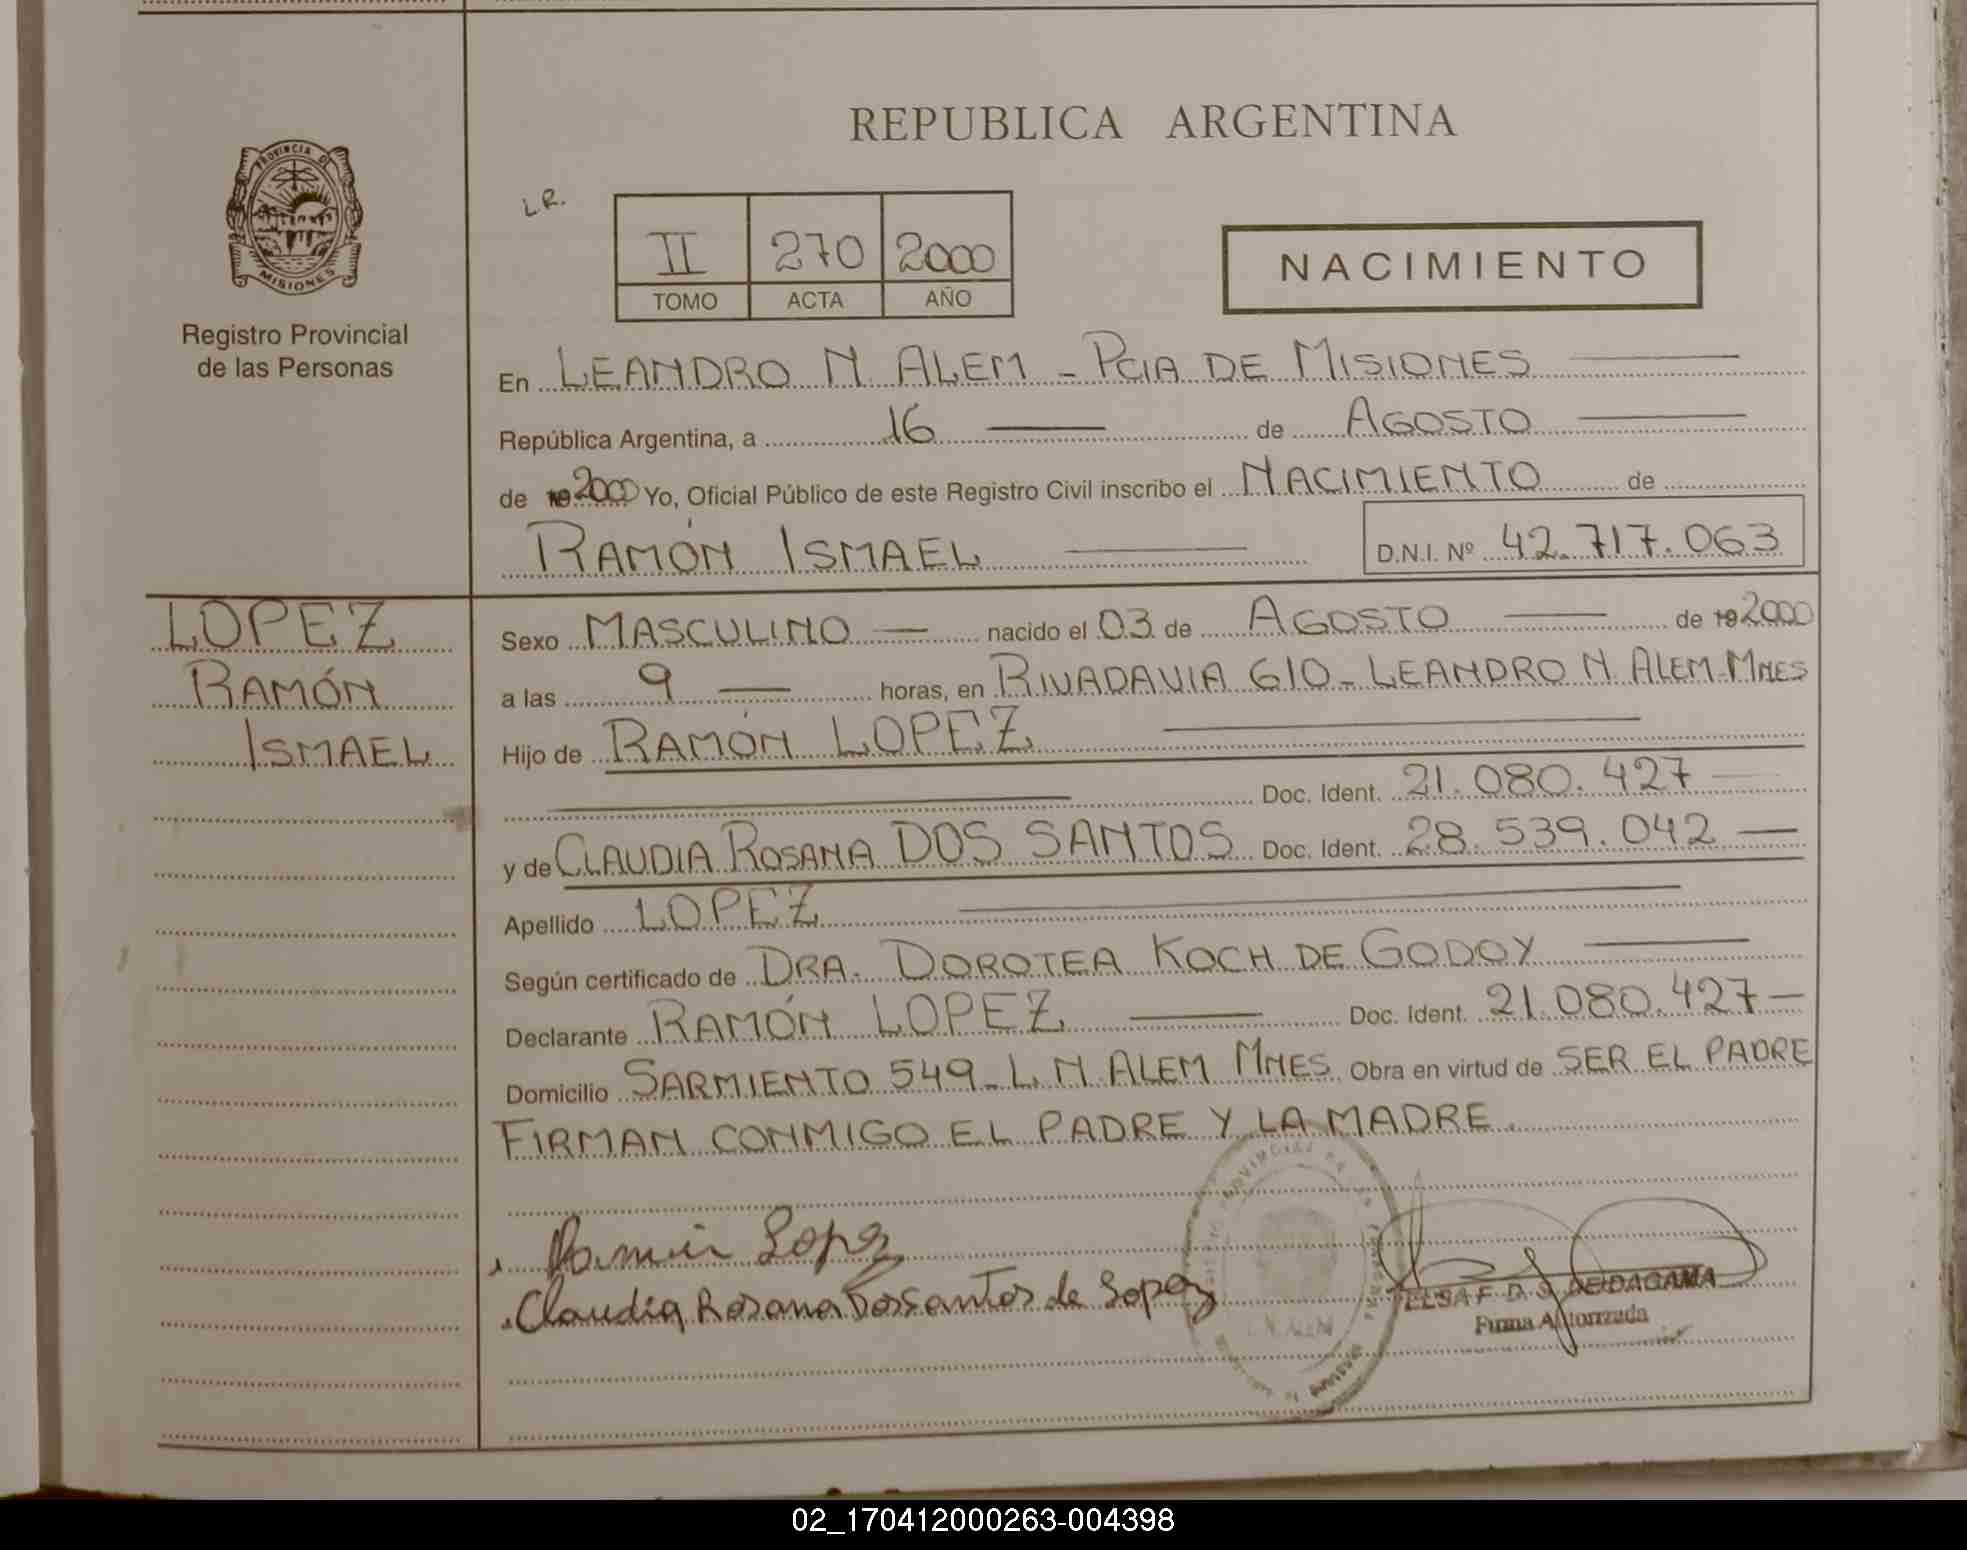 REPUBLICA ARGENTINA
PROVINCIA DE
MISIONES
Registro Provincial
de las Personas
L.R.
II 270 2000
TOMO ACTA AÑO
NACIMIENTO
En LEANDRO N. ALEM - PCIA DE MISIONES
República Argentina, a 16 de AGOSTO
de 19 2000 Yo, Oficial Público de este Registro Civil inscribo el NACIMIENTO de
RAMÓN ISMAEL D.N.I. Nº 42.717.063
LOPEZ
RAMÓN
ISMAEL
Sexo MASCULINO nacido el 03 de AGOSTO de 19 2000
a las 9 horas, en RIVADAVIA 610 - LEANDRO N. ALEM - MNES
Hijo de RAMÓN LOPEZ
Doc. Ident. 21.080.427
y de CLAUDIA ROSANA DOS SANTOS Doc. Ident. 28.539.042
Apellido LOPEZ
Según certificado de DRA. DOROTEA KOCH DE GODOY
Declarante RAMÓN LOPEZ Doc. Ident. 21.080.427
Domicilio SARMIENTO 549 - L. N. ALEM MNES. Obra en virtud de SER EL PADRE
FIRMAN CONMIGO EL PADRE Y LA MADRE.
Ramón Lopez
Claudia Rosana Dos Santos de Lopez
ELSA F. D. S. DE DAGAMA
Firma Autorizada
02_170412000263-004398